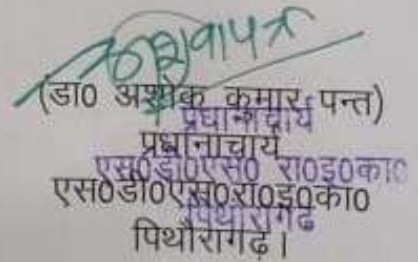 (डा0 अशोक कुमार पन्त)
प्रधानाचार्य
प्रधानाचार्य
एस0डी0एस0 रा0इ0का0
एस0डी0एस0रा0इ0का0
पिथौरागढ़
पिथौरागढ़।